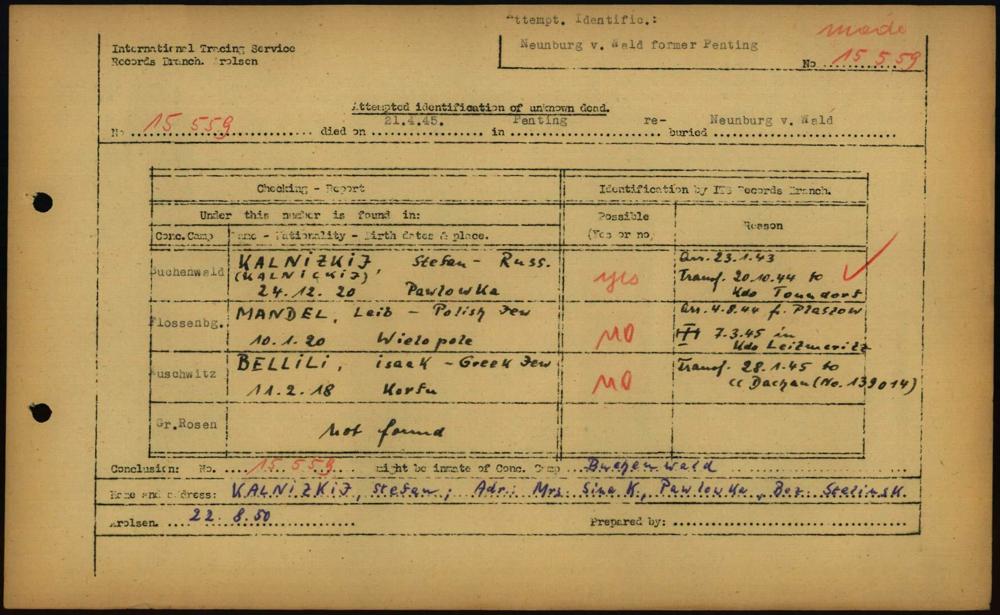 Attempt. Identific.:
Neunburg v. Wald former Penting
made
No 15559
International Tracing Service
Records Branch. Arolsen
Attempted identification of unknown dead.
No 15 559 died on 21.4.45. in Penting re-buried Neunburg v. Wald
Checking - Report
Identification by ITS Records Branch.
Under this number is found in:
Possible (Yes or no)
Reason
Conc.Camp
Name - Nationality - Birth dates & place.
Buchenwald
KALNIZKIJ Stefan - Russ.
(KALNICKIJ)
24.12. 20 Pawlowka
yes
arr. 23.1.43
Transf. 20.10.44 to
Kdo Tonndorf
Flossenbg.
MANDEL, Leib - Polish Jew
10.1.20 Wielopole
NO
arr. 4.8.44 f. Plaszow
7.3.45 in
Kdo Leitmeritz
Auschwitz
BELLILI, isaak - Greek Jew
11.2.18 Korfu
NO
Transf. 28.1.45 to
CC Dachau (No. 139014)
Gr.Rosen
Not found
Conclusion: No. 15559 might be inmate of Conc. Camp Buchenwald
Name and address: KALNIZKIJ, Stefan; Adr.: Mrs. Sina K., Pawlowka, Bez. Stalinsk.
Arolsen. 22.8.50 Prepared by: